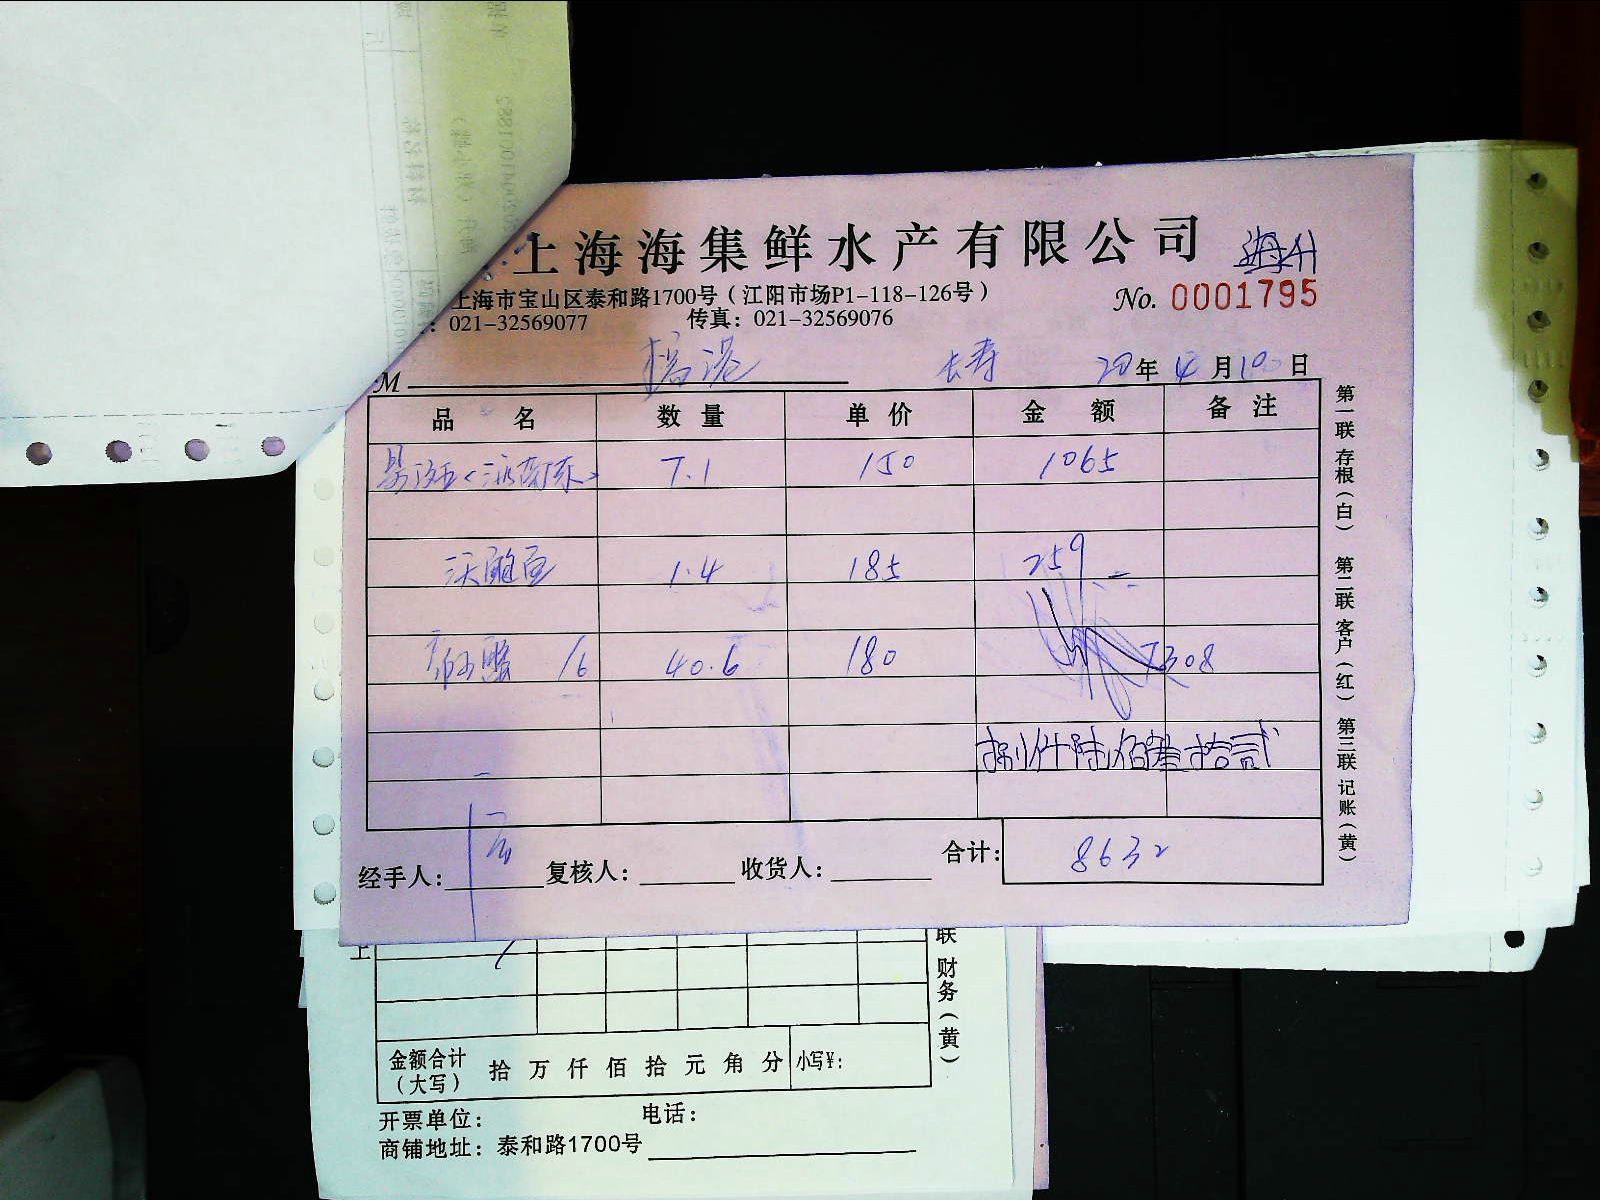 上海海集鲜水产有限公司
上海市宝山区泰和路1700号（江阳市场P1-118-126号）
No. 0001795
: 021-32569077 传真：021-32569076
M 长寿 20年4月10日
品名 数量 单价 金额 备注
7.1 150 1065
1.4 185 259
16 40.6 180 7308
捌仟陆佰叁拾贰
合计: 8632
经手人: 复核人: 收货人:
第一联 存根（白） 第二联 客户（红） 第三联 记账（黄）
联 财务（黄）
金额合计（大写） 拾 万 仟 佰 拾 元 角 分 小写¥:
开票单位: 电话:
商铺地址: 泰和路1700号